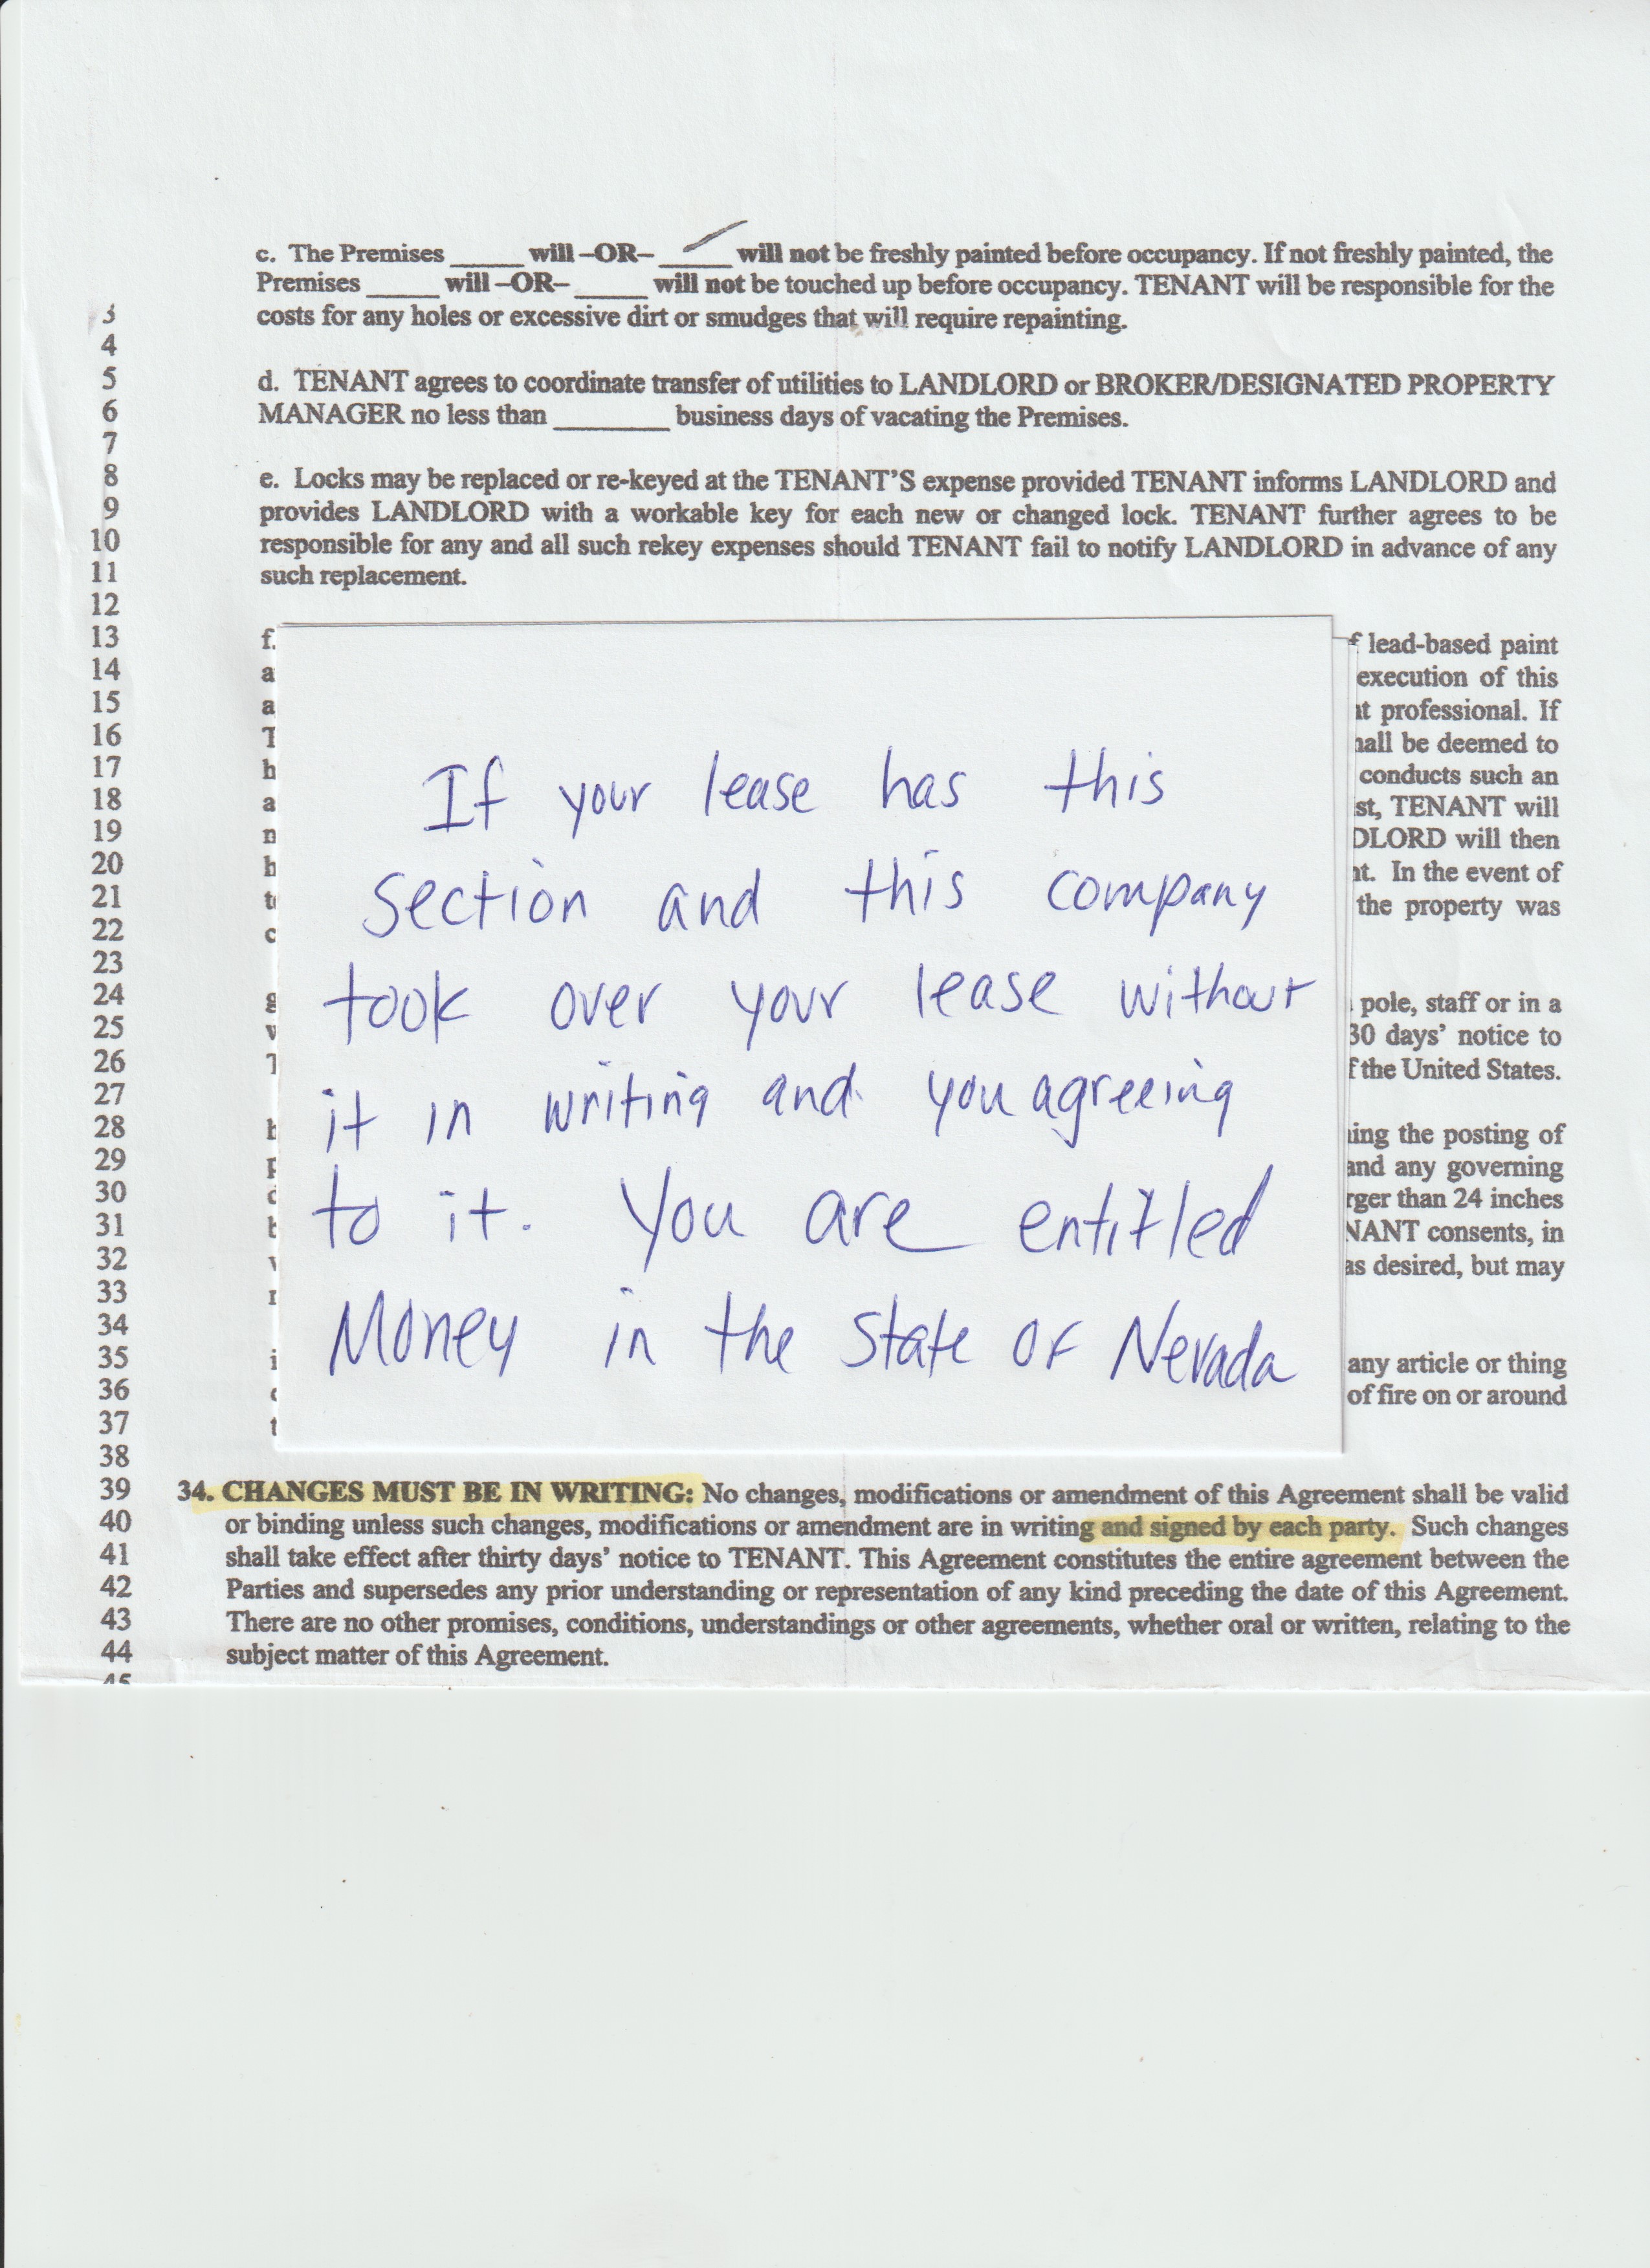 c. The Premises _____ will –OR– _____ will not be freshly painted before occupancy. If not freshly painted, the
Premises _____ will –OR– _____ will not be touched up before occupancy. TENANT will be responsible for the
3 costs for any holes or excessive dirt or smudges that will require repainting.
4
5 d. TENANT agrees to coordinate transfer of utilities to LANDLORD or BROKER/DESIGNATED PROPERTY
6 MANAGER no less than ________ business days of vacating the Premises.
7
8 e. Locks may be replaced or re-keyed at the TENANT'S expense provided TENANT informs LANDLORD and
9 provides LANDLORD with a workable key for each new or changed lock. TENANT further agrees to be
10 responsible for any and all such rekey expenses should TENANT fail to notify LANDLORD in advance of any
11 such replacement.
12
13 f. lead-based paint
14 execution of this
15 professional. If
16 shall be deemed to
17 conducts such an
18 TENANT will
19 will then
20 In the event of
21 the property was
22
23
24 pole, staff or in a
25 30 days' notice to
26 the United States.
27
28 the posting of
29 and any governing
30 than 24 inches
31 consents, in
32 as desired, but may
33
34
35 any article or thing
36 of fire on or around
37
38
If your lease has this
section and this company
took over your lease without
it in writing and you agreeing
to it. You are entitled
Money in the state of Nevada
39 34. CHANGES MUST BE IN WRITING: No changes, modifications or amendment of this Agreement shall be valid
40 or binding unless such changes, modifications or amendment are in writing and signed by each party. Such changes
41 shall take effect after thirty days' notice to TENANT. This Agreement constitutes the entire agreement between the
42 Parties and supersedes any prior understanding or representation of any kind preceding the date of this Agreement.
43 There are no other promises, conditions, understandings or other agreements, whether oral or written, relating to the
44 subject matter of this Agreement.
45